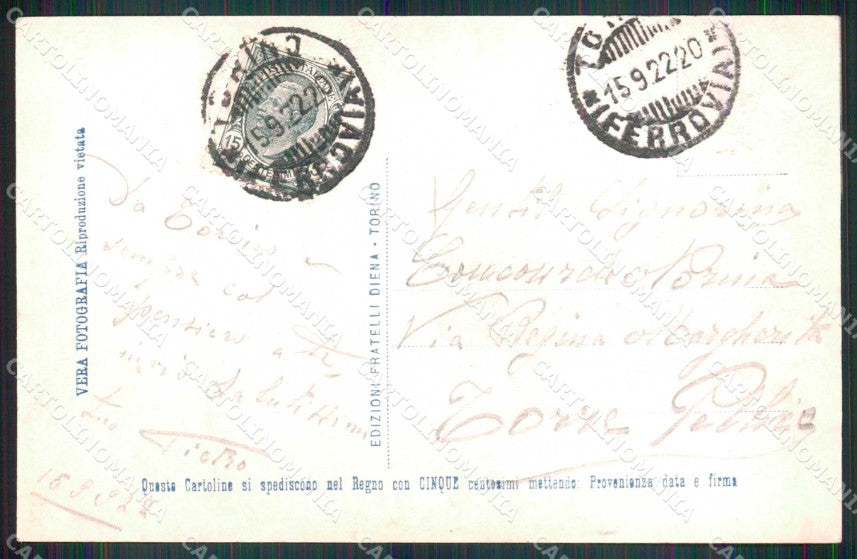 VERA FOTOGRAFIA Riproduzione vietata
EDIZIONI FRATELLI DIENA - TORINO
15
15 9 22 20
TORINO
(FERROVIA)
15 9 22 20
(FERROVIA)
Da Torino
sempre col
pensiero a te,
invio Salutissimi
tuo Pietro
15 9 922
Gentil Signorina
Via Regina Margherita
Torre Pellice
Queste Cartoline si spediscono nel Regno con CINQUE centesimi mettendo: Provenienza data e firma
CARTOLINOMANIA